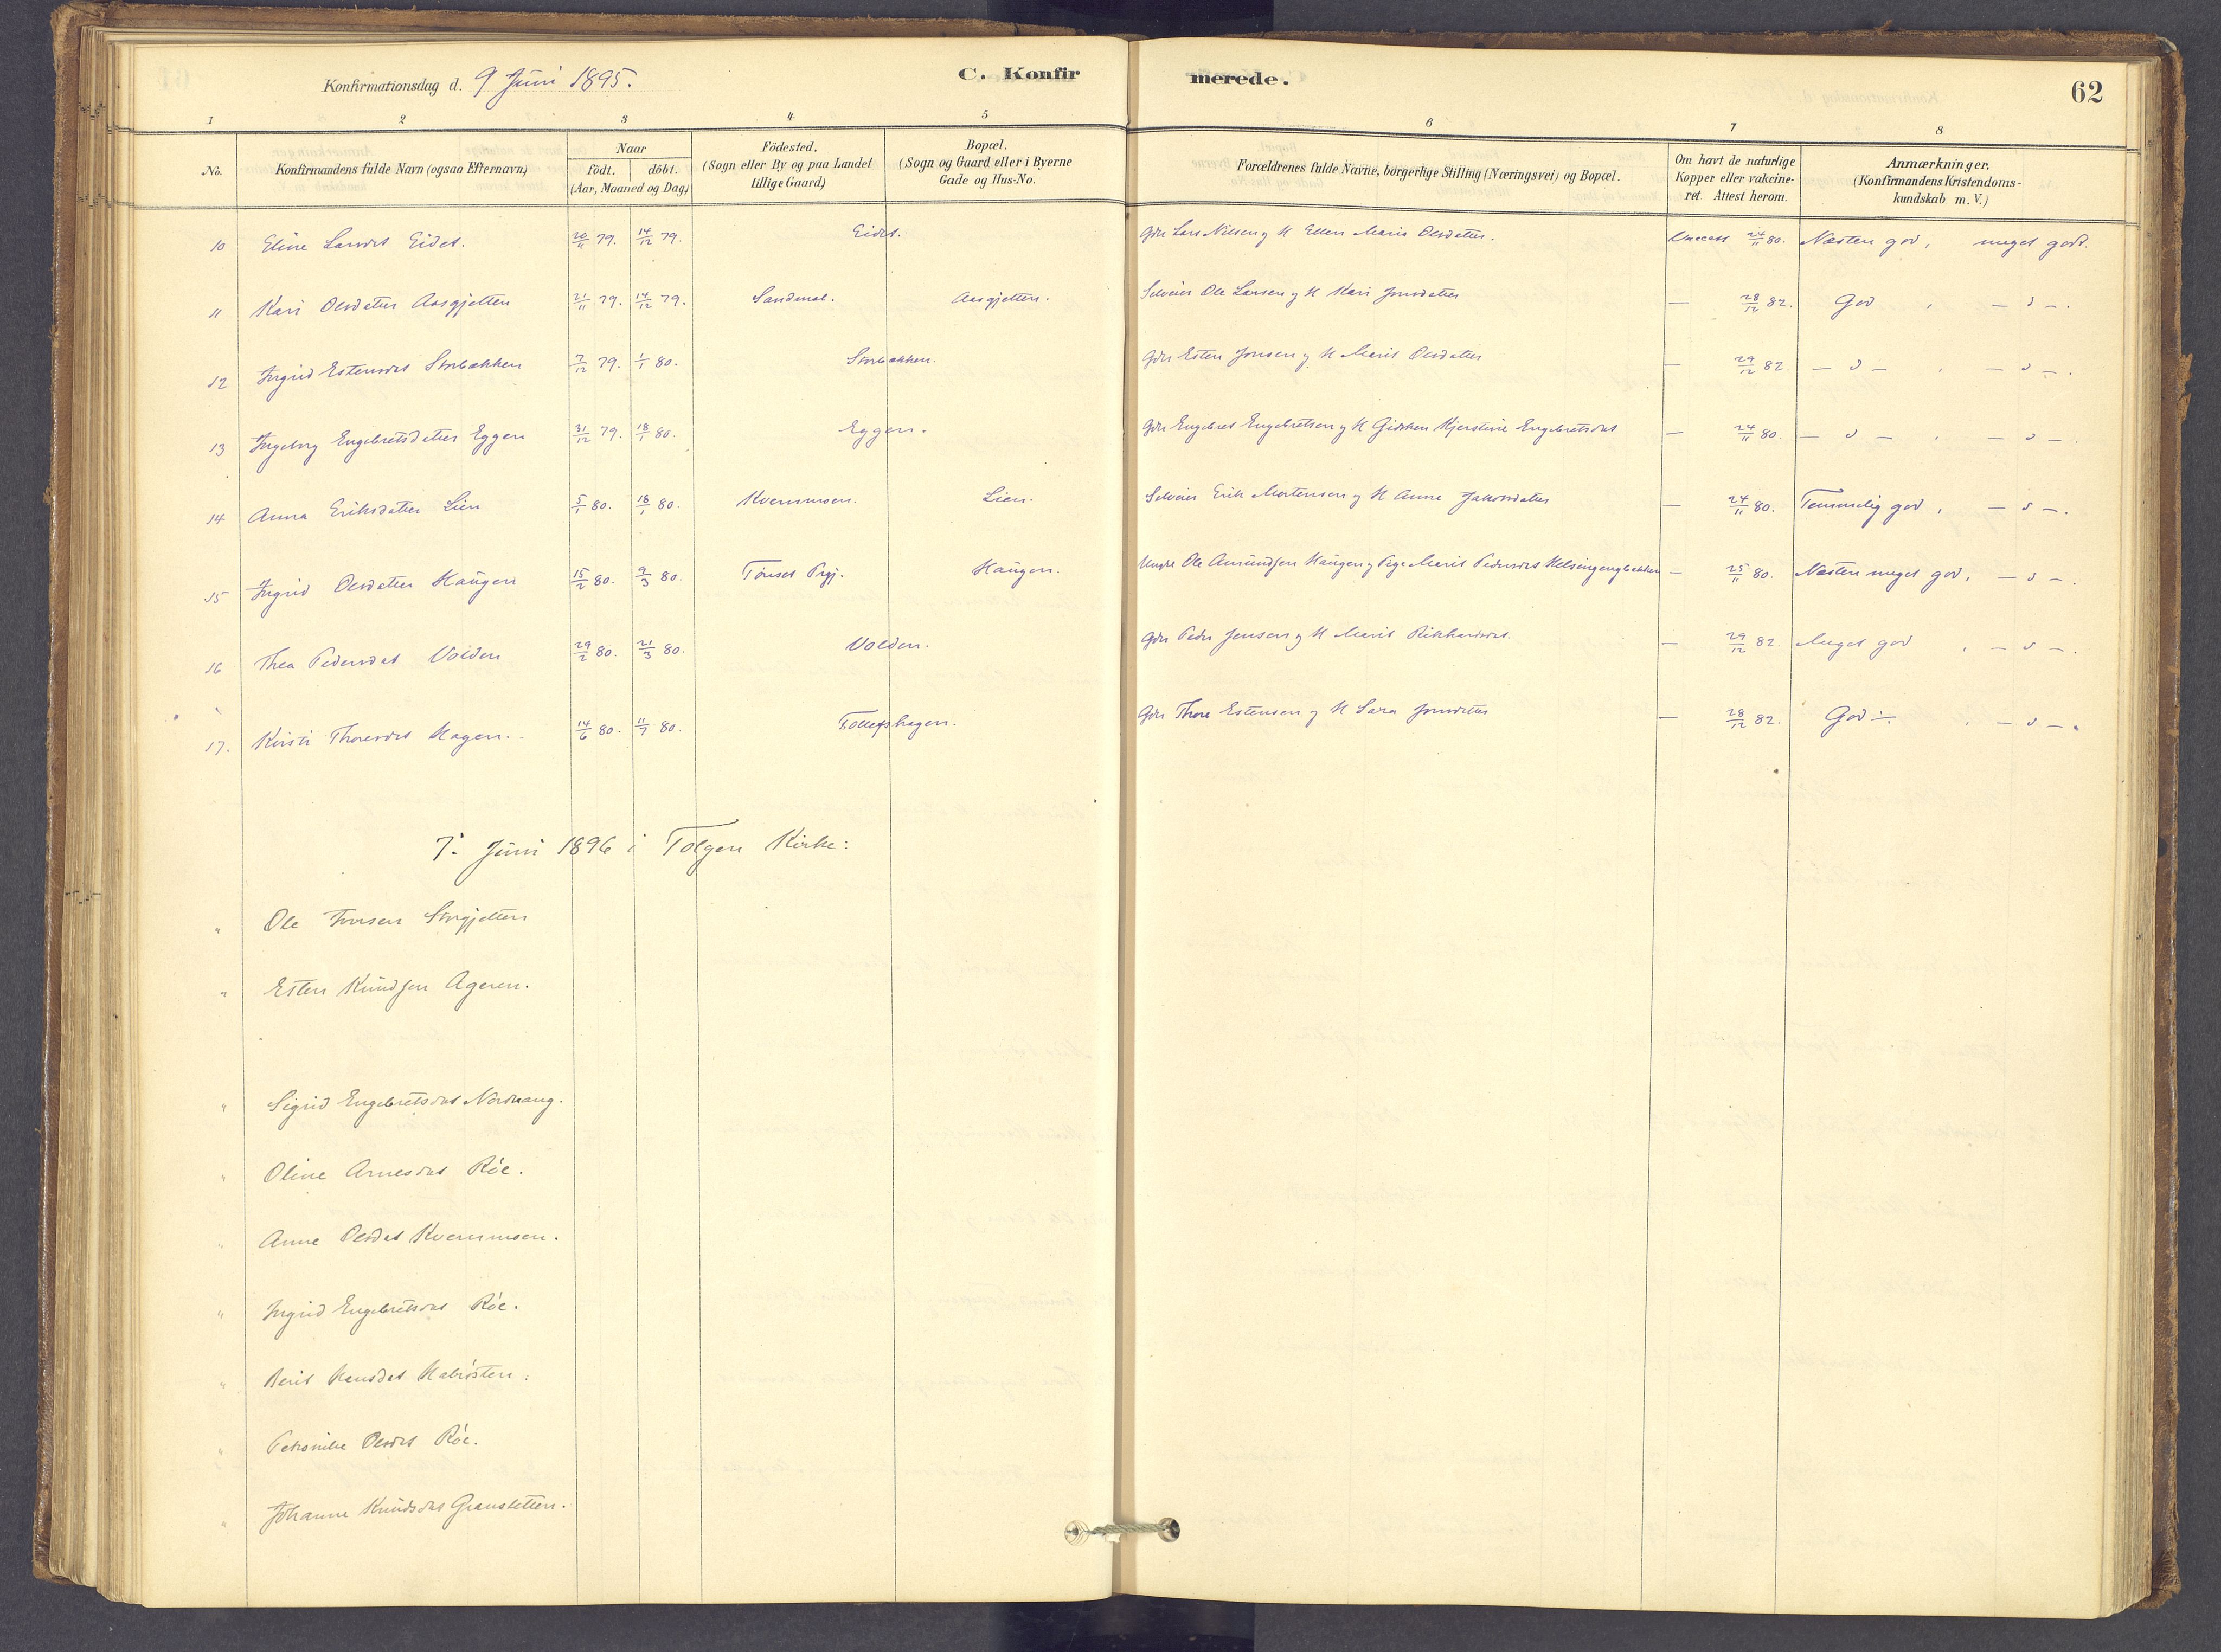 Konfirmationsdag d. 9 Juni 1895.
C. Konfirmerede.
62
1 2 3 4 5 6 7 8
No.
Konfirmandens fulde Navn (ogsaa Efternavn)
Naar
födt. döbt.
(Aar, Maaned og Dag)
Födested.
(Sogn eller By og paa Landet
tillige Gaard)
Bopæl.
(Sogn og Gaard eller i Byerne
Gade og Hus-No.
Forældrenes fulde Navne, borgerlige Stilling (Næringsvei) og Bopæl.
Om havt de naturlige
Kopper eller vakcine-
ret Attest herom.
Anmærkninger.
(Konfirmandens Kristendoms-
kundskab m. V.)
10 Eline Larsdt Eidet. 20/11 79. 14/12 79. Eidet. Gdr Lars Nilsen og H Ellen Maria Olsdatter. 24/11 80. Næsten god, meget godt.
11 Kari Olsdatter Aasgjetten 21/11 79. 14/12 79. Sandmæl. Aasgjetten. Selveier Ole Larsen og H Kari Jonsdatter — 28/12 82. God, — " —.
12 Ingrid Estensdt Storbækken 7/12 79. 1/1 80. Storbækken. Gdr Esten Jonsen og H Marit Olsdatter — 29/12 82. — " —, — " —.
13 Ingeborg Engebretsdatter Eggen 31/12 79. 18/1 80. Eggen. Gdr Engebret Engebretsen og H Gidsken Kjerstine Engebretsdat — 24/11 80. — " —, — " —.
14 Anna Eriksdatter Lien 5/1 80. 18/1 80. Kvernmoen. Lien. Selveier Erik Mortensen og H Anne Jakobsdatter — 24/11 80. Temmelig god, — " —.
15 Ingrid Olsdatter Haugen 15/2 80. 9/3 80. Tönset Prgj. Haugen. Ungkr Ole Amundsen Haugen og Pige Marit Pedersdt Helsingengbakken — 25/11 80. Næsten meget god, — " —.
16 Thea Pedersdat Volden 29/2 80. 21/3 80. Volden. Gdr Peder Jensen og H Marit Rikhardsdt. — 29/12 82. Meget god, — " —.
17. Kirsti Thoresdt Hagen. 14/6 80. 11/7 80. Gdr Thore Estensen og H Sara Jonsdatter — 28/12 82. God ÷, — " —.
7. Juni 1896 i Tolgen Kirke:
" Ole Storgjetten
" Esten Knudsen Ageren.
" Sigrid Engebretsdat Nordvang.
" Oline Arnesdat Röe.
" Anne Olsdat Kvernmoen.
" Ingrid Engebretsdat Röe.
" Berit Hansdat
" Olsdt Röe.
" Johanne Knudsdat Granstetten.